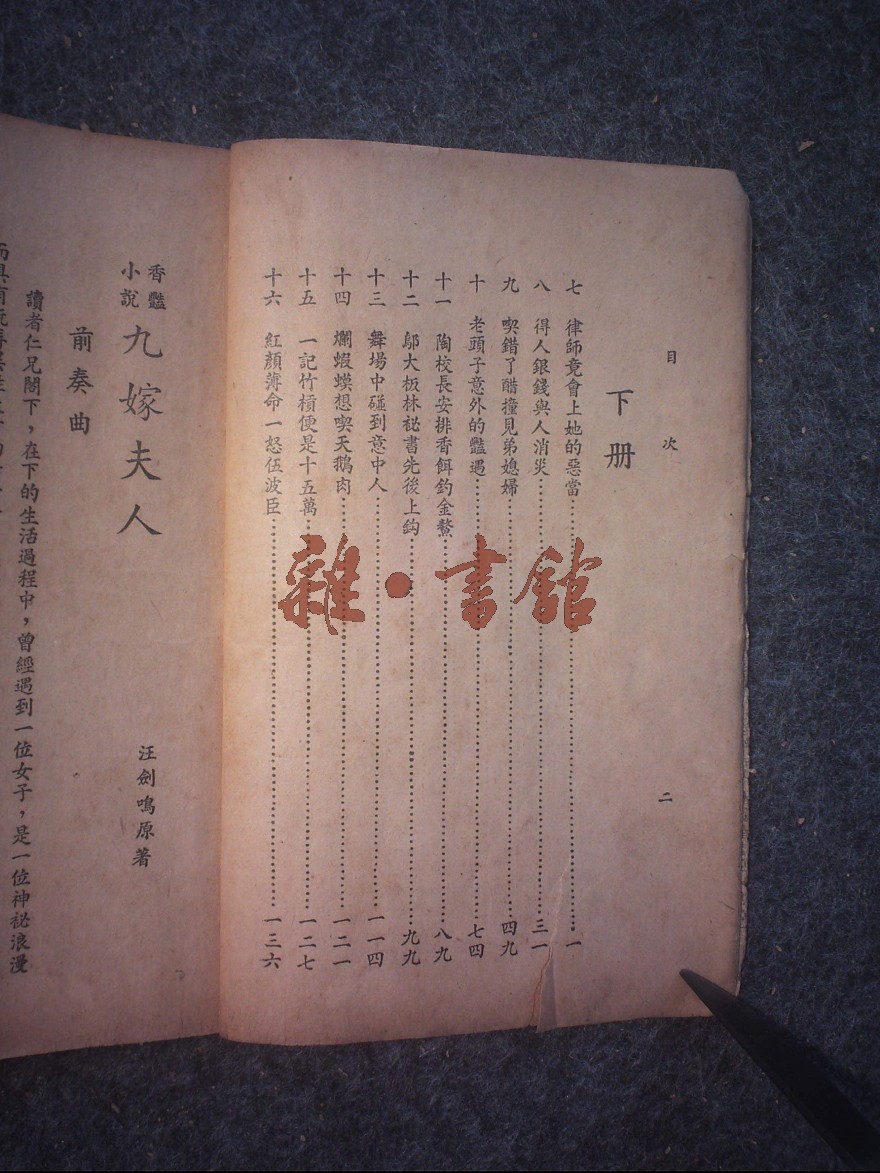 目次
二
下册
七 律師竟會上她的惡當…一
八 得人銀錢與人消災…三一
九 喫錯了醋撞見弟媳婦…四九
十 老頭子意外的豔遇…七四
十一 陶校長安排香餌釣金鰲…八九
十二 鄔大板林祕書先後上鈎…九九
十三 舞場中碰到意中人…一一四
十四 爛蝦蟆想喫天鵝肉…一二一
十五 一記竹槓便是十五萬…一二七
十六 紅顏薄命一怒伍波臣…一三六
香豔小說 九嫁夫人
汪劍鳴原著
前奏曲
讀者仁兄閣下，在下的生活過程中，曾經遇到一位女子，是一位神祕浪漫
雜·書館